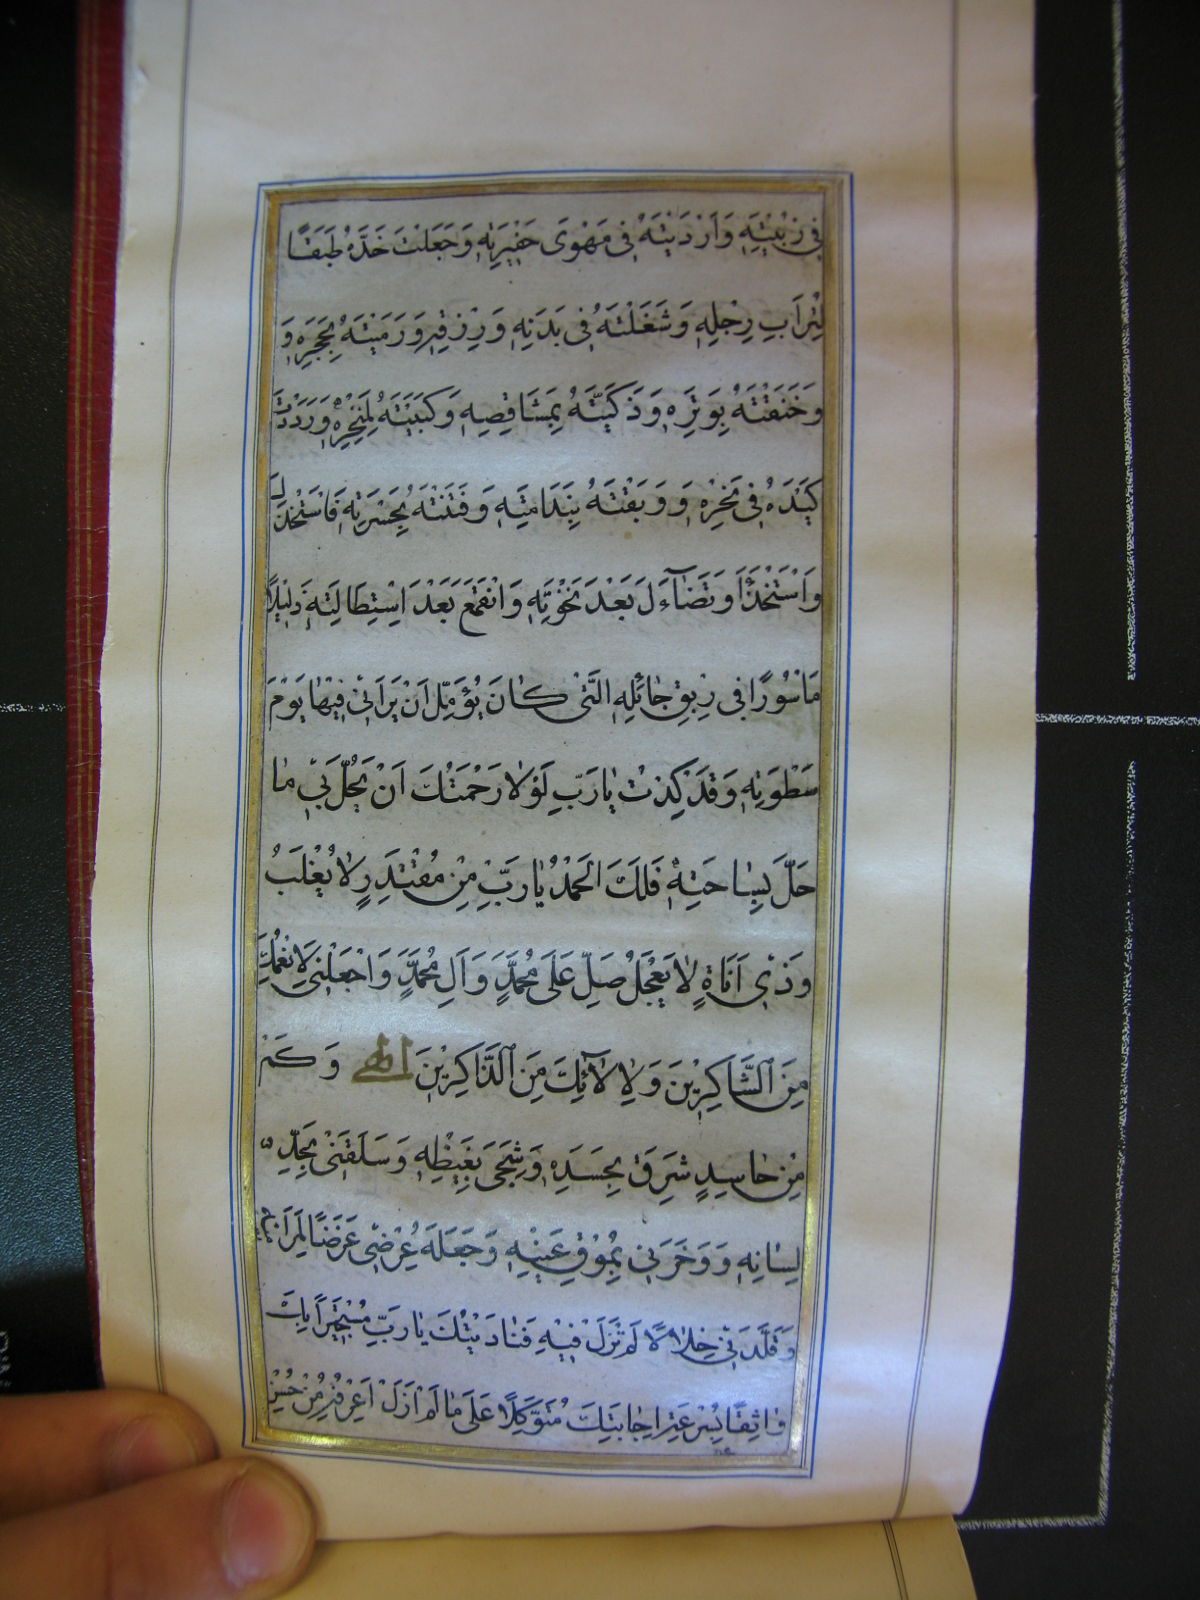 فِي زُبْيَتِهِ وَاَرْدَيْتَهُ فِي مَهْوَى حَفِيرَتِهِ وَجَعَلْتَ خَدَّهُ طَبَقًا
لِتُرَابِ رِجْلِهِ وَشَغَلْتَهُ فِي بَدَنِهِ وَرِزْقِهِ وَرَمَيْتَهُ بِحَجَرِهِ وَ
وَخَنَقْتَهُ بِوَتَرِهِ وَذَكَّيْتَهُ بِمَشَاقِصِهِ وَكَبَبْتَهُ لِمَنْخِرِهِ وَرَدَدْتَ
كَيْدَهُ فِي نَحْرِهِ وَ وَبَقْتَهُ بِنَدَامَتِهِ وَفَتَنْتَهُ بِحَسْرَتِهِ فَاسْتَخْذَلَ
وَاسْتَخْذَأَ وَتَضَآءَلَ بَعْدَ نَخْوَتِهِ وَانْقَمَعَ بَعْدَ اسْتِطَالَتِهِ ذَلِيْلًا
مَاْسُورًا فِي رِبَقِ حَبَائِلِهِ الَّتِي كَانَ يُؤَمِّلُ اَنْ يَرَانِي فِيْهَا يَوْمَ
سَطْوَتِهِ وَقَدْ كِدْتُ يَا رَبِّ لَوْلَا رَحْمَتُكَ اَنْ يَحُلَّ بِي مَا
حَلَّ بِسَاحَتِهِ فَلَكَ الْحَمْدُ يَا رَبِّ مِنْ مُقْتَدِرٍ لَا يُغْلَبُ
وَذِي اَنَاةٍ لَا يَعْجَلُ صَلِّ عَلَى مُحَمَّدٍ وَآلِ مُحَمَّدٍ وَاجْعَلْنِي لِانْعُمِكَ
مِنَ الشَّاكِرِيْنَ وَلِاٰلَآئِكَ مِنَ الذَّاكِرِيْنَ اِلٰهِي وَكَمْ
مِنْ حَاسِدٍ شَرِقَ بِحَسَدِهِ وَشَجِيَ بِغَيْظِهِ وَسَلَقَنِي بِحَدِّ
لِسَانِهِ وَوَخَزَنِي بِمُوْقِ عَيْنِهِ وَجَعَلَهُ عِرْضِي غَرَضًا لِمَرَامِيْهِ
وَقَلَّدَنِي خِلَالًا لَمْ تَزَلْ فِيْهِ فَنَادَيْتُكَ يَا رَبِّ مُسْتَجِيْرًا بِكَ
وَاثِقًا بِسُرْعَةِ اِجَابَتِكَ مُتَوَكِّلًا عَلَى مَا لَمْ اَزَلْ اَعْرِفُهُ مِنْ حُسْنِ